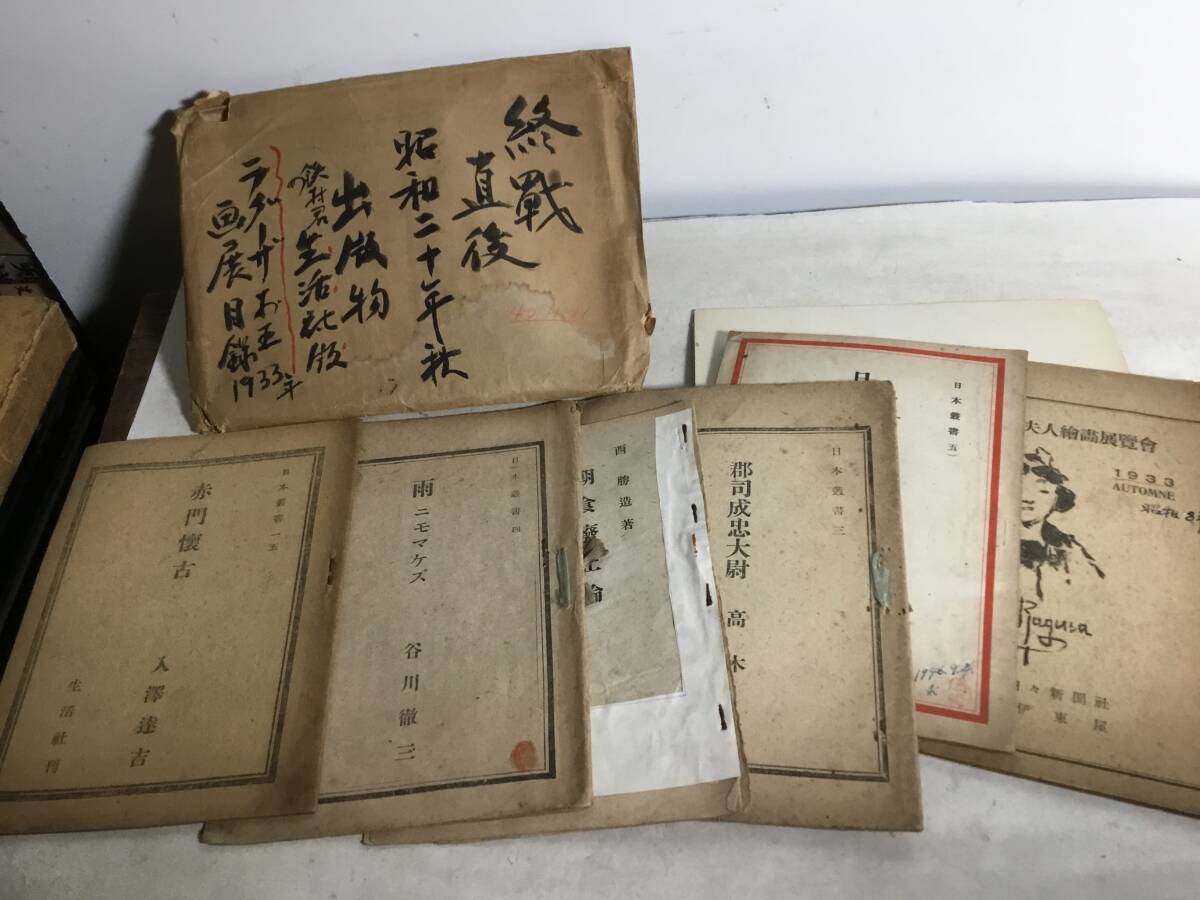 終戰
直後
昭和二十年秋
出版物
鉄村君の
生活社版
ラグーザお玉
画展目録
1933年
日本叢書一五
赤門懷古
入澤達吉
生活社刊
日本叢書四
雨ニモマケズ
谷川徹三
西勝造著
朝食廢止論
日本叢書三
郡司成忠大尉
高木
日本叢書五一
日
夫人繪畫展覽會
1933
AUTOMNE
昭和
Ragusa
日々新聞社
伊東屋